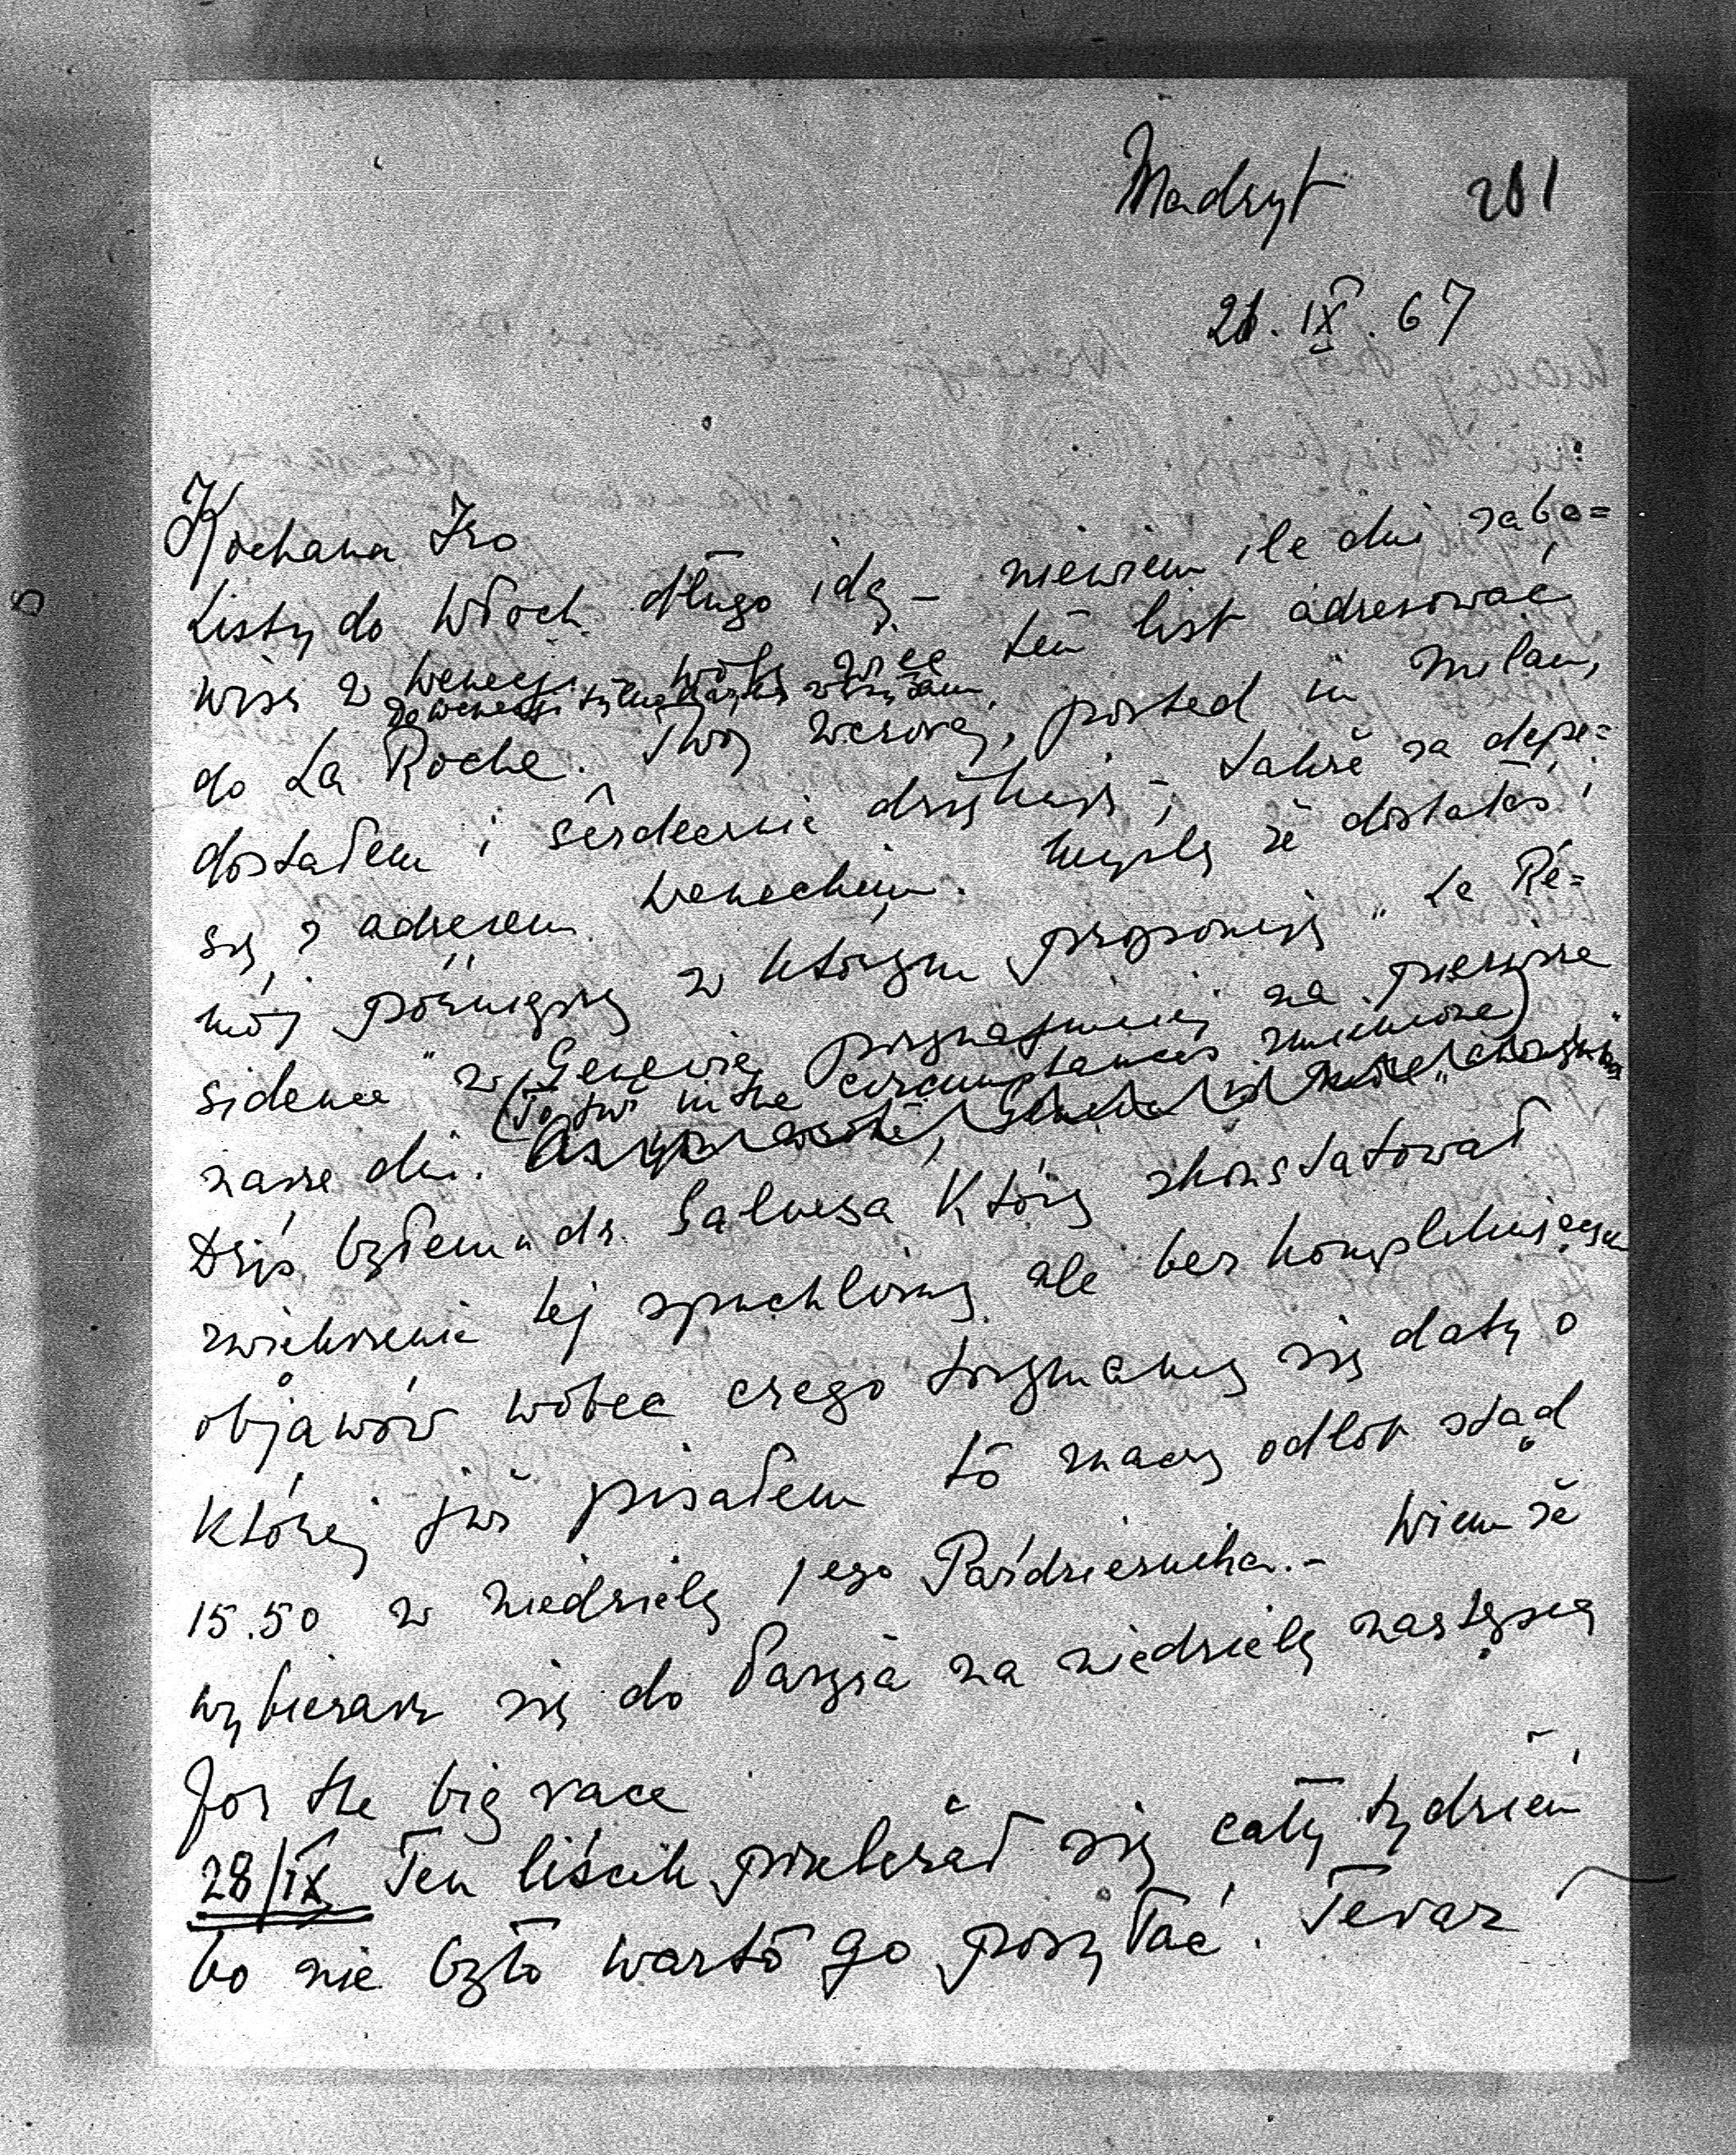 Madryt 281
21.IX.67
Kochana Izo
Listy do Włoch długo idą – niewiem ile dni zaba=
wisz w Wenecji wolę więc ten list adresować
do Wenecji
do La Roche. Twój wczoraj, posted in Milan,
dostałem i serdecznie dziękuję, także za depe=
szę z adresem weneckim. Myślę że dostałaś
mój późniejszy w którym proponuję "Le Ré=
sidence" w Genewie przynajmniej na pierwsze
(To już in the circumstances zmienione)
nasze dni.
Dziś byłem u dr. Galveza który skonstatował
zwiększenie tej spuchlizny ale bez komplikujących
objawów wobec czego trzymamy się daty o
której już pisałem to znaczy odlot stąd
15.50 w niedzielę 1ego Października. – Wiem że
wybierasz się do Paryża na niedzielę następną
for the big race
28/IX Ten liścik przeleżał się cały tydzień
bo nie było warto go posyłać. Teraz